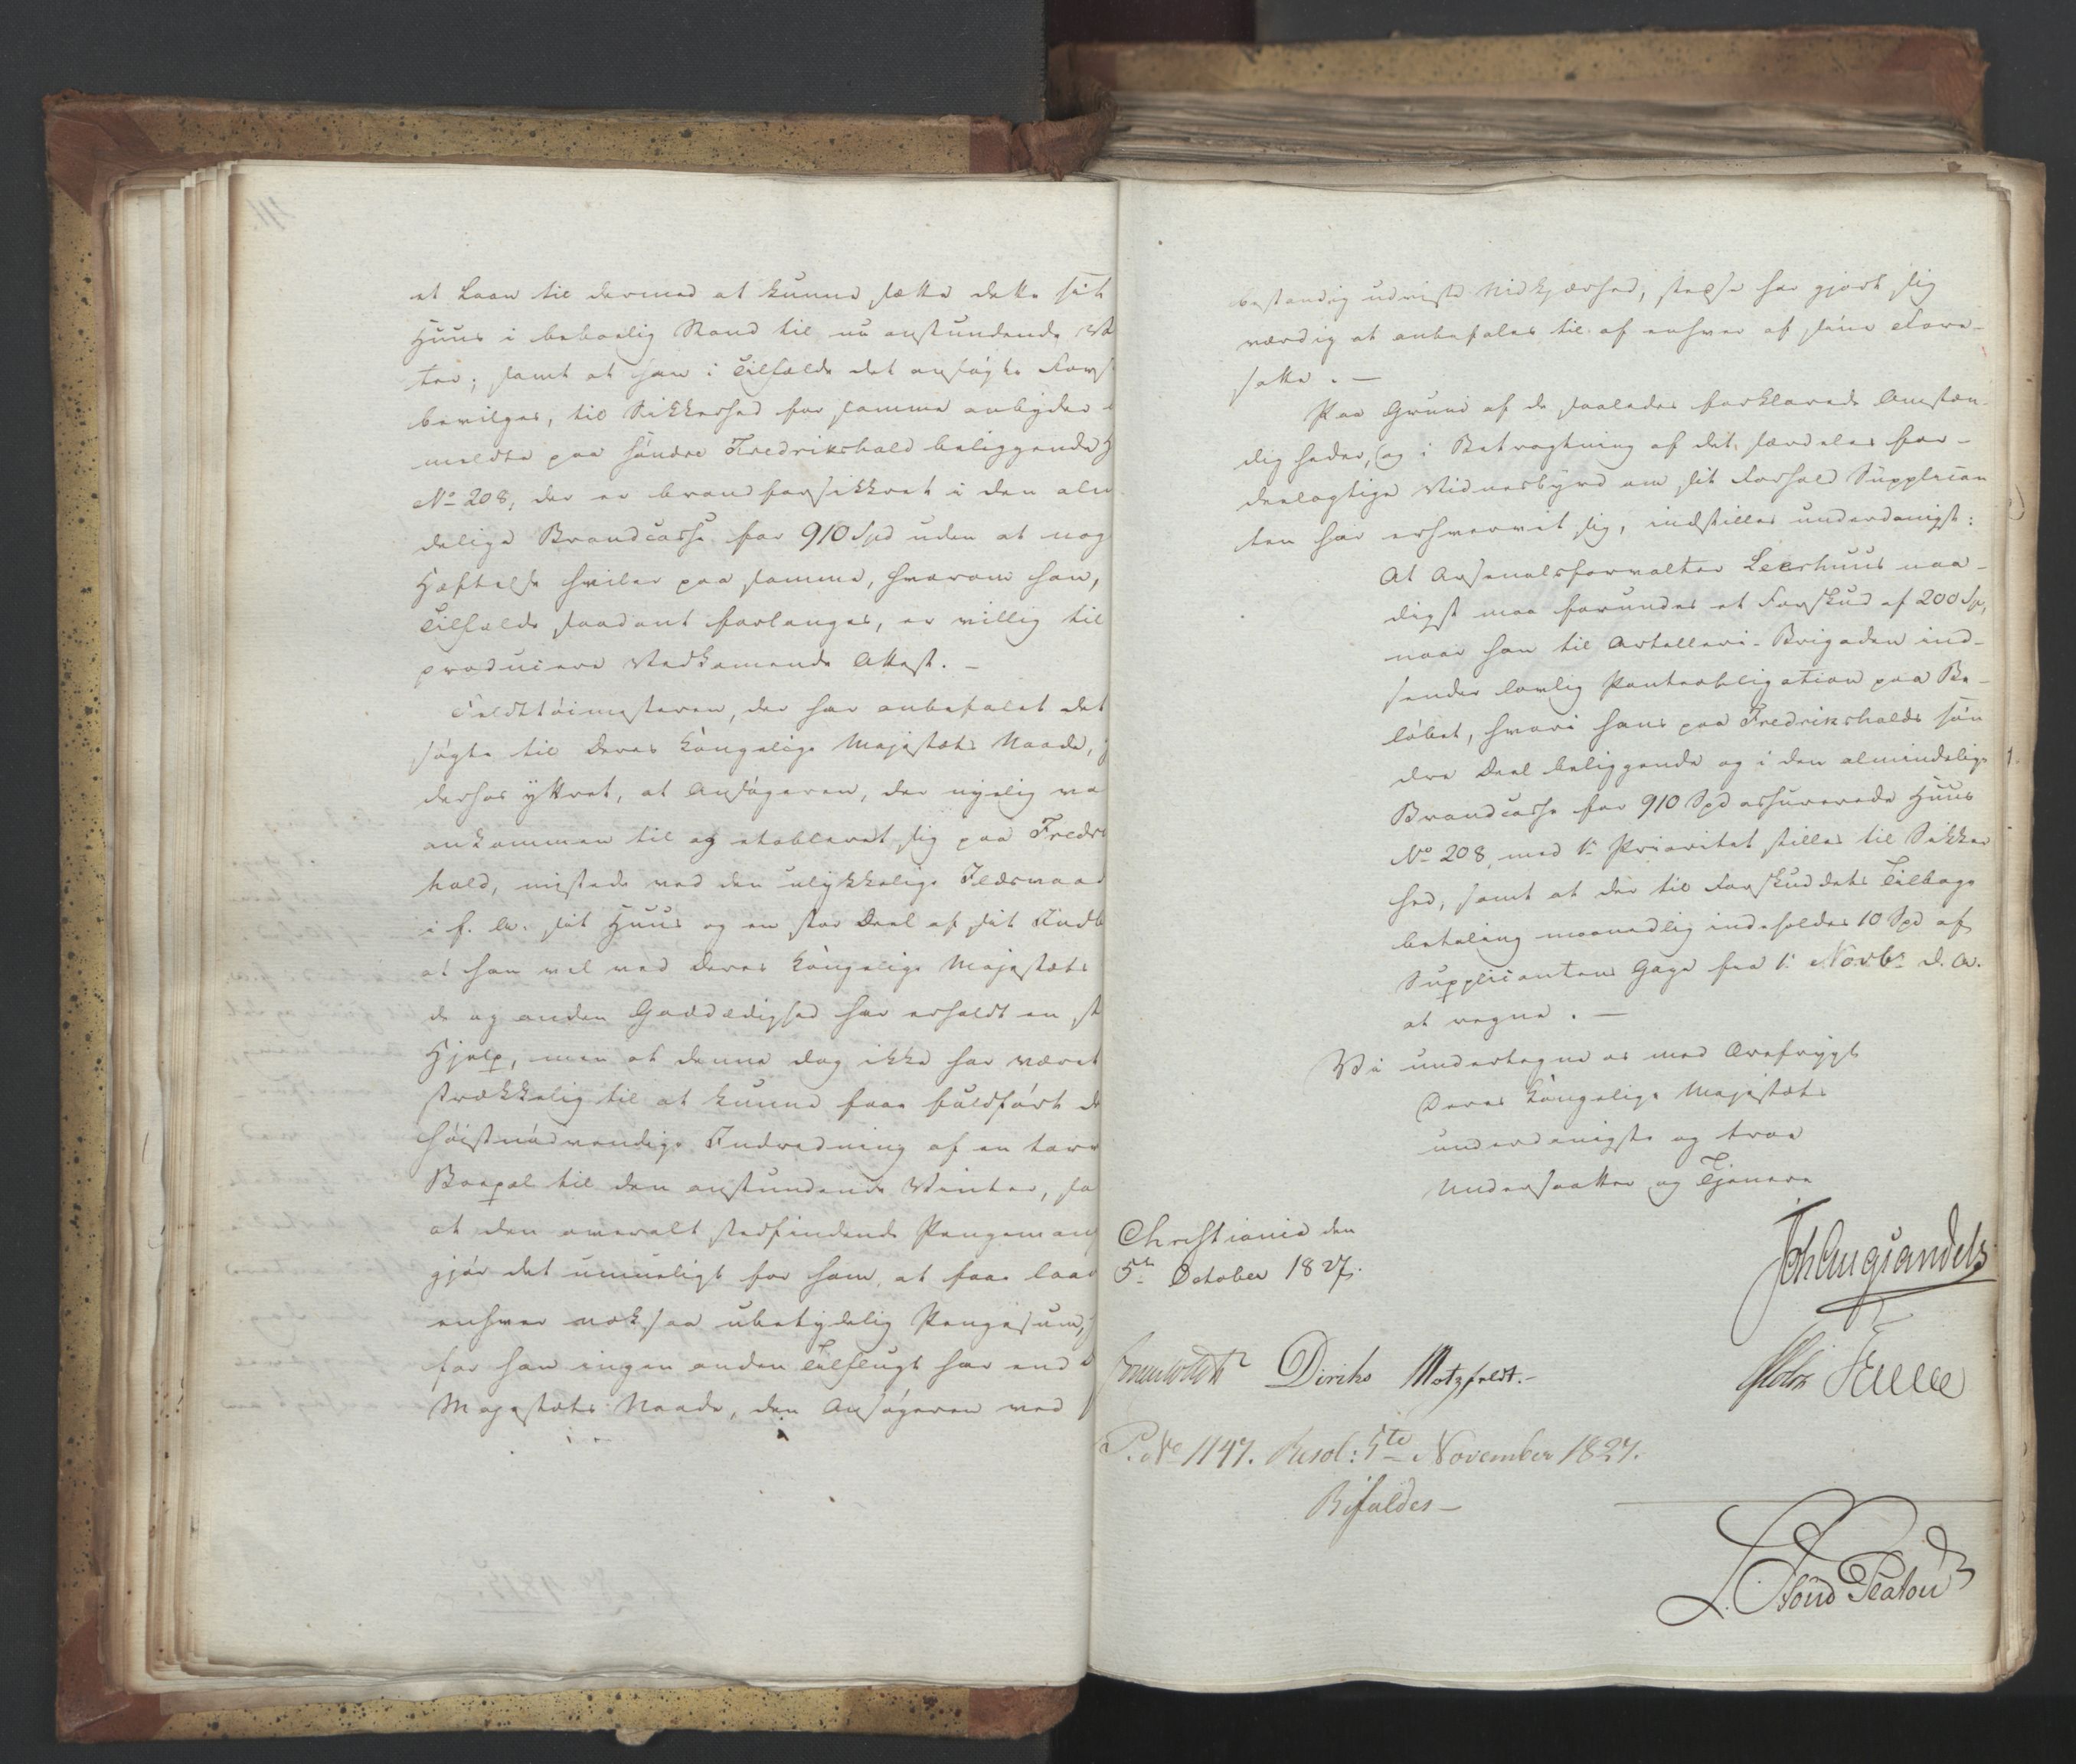 et Laan til dermed at kunne sætte dette sit
Huus i beboelig Stand til nu anstundende Vi
ter; samt at han i Tilfælde det ansøgte Forsk
bevilges, til Sikkerhed for samme anbyder
meldte paa søndre Fredrikshald beliggende H
No 208, der er brandforsikkret i den alm
delige Brandcasse for 910 Spd uden at nog
Hæftelse hviler paa samme, hvorom han,
Tilfælde saadant forlanges, er villig til
producere Vedkommende Attest. –
Feldttøimesteren, der har anbefalet det
søgte til Deres Kongelige Majestæts Naade,
derhos yttret, at Ansøgeren, der nyelig va
ankommen til og etableret sig paa Fredri
hald, mistede ved den ulykkelige Ildsvaad
i f. A. sit Huus og en stor Deel af sit Indb
at han vel ved Deres Kongelige Majestæts
de og anden Goddædighed har erholdt en st
Hjelp, men at denne dog ikke har været
strækkelig til at kunne faae fuldført d
høistnødvendige Indredning af en tarv
Boepæl til den anstundende Vinter, sa
at den overalt stedfindende Pengemang
gjør det umueligt for ham at faae laan
enhver nok saa ubetydelig Pengesum,
for han ingen anden Tilflugt har end D
Majestæts Naade, den Ansøgeren ved
bestandig udviiste Nidkjærhed, har gjort sig
værdig at anbefales til af enhver af sine Fore-
satte. –
Paa Grund af de saaledes forklarede Omstæn-
digheder, og i Betragtning af det særdeles for-
deelagtige Vidnesbyrd om sit Forhold Supplican
ten har erhvervet sig, indstilles underdanigst:
At Arsenalforvalter Leerhuus naa-
digst maa forundes et Forskud af 200 Sp,
naar han til Artelleri-Brigaden ind-
sender lovlig Panteobligation paa Be-
løbet, hvori hans paa Fredrikshalds søn
dre Deel beliggende og i den almindelige
Brandcasse for 910 Spd assurerede Huus
No 208, med 1e Prioritet stilles til Sikker
hed, samt at der til Forskuddets Tilbage
betaling maanedlig indeholdes 10 Spd af
Supplicantens Gage fra 1e Novbr d. A.
at regne. –
Vi undertegne os med Ærefrygt
Deres Kongelige Majestæts
underdanigste og troe
Undersaatter og Tjenere
Christiania den
5te October 1827.
Joh Aug Sandels
Diriks Motzfeldt. –
Holst Fasting
P. No 1147. Resol: 5te November 1827.
Bifaldes –